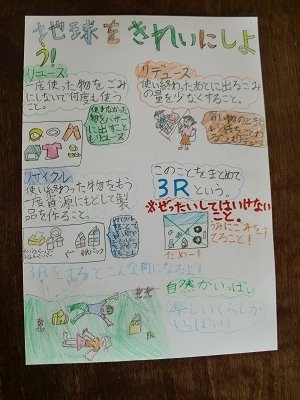 地球をきれいにしよ
う!
リユース
一度使った物をごみ
にしないで何度も使う
こと。
使わなくなった
物をバザー
に出すこと
もリユース
リデュース
使い終わったあとに出るごみ
の量を少なくすること。
リサイクル
使い終わった物をもう
一度資源にもどして製
品を作ること。
このことをまとめて
3Rという。
※ぜったいしてはいけない
こと。
うみにごみをす
てること!
だめー!
3Rをするとこんな町になるよ♪
自然がいっぱい
楽しいくらしが
いっぱい!